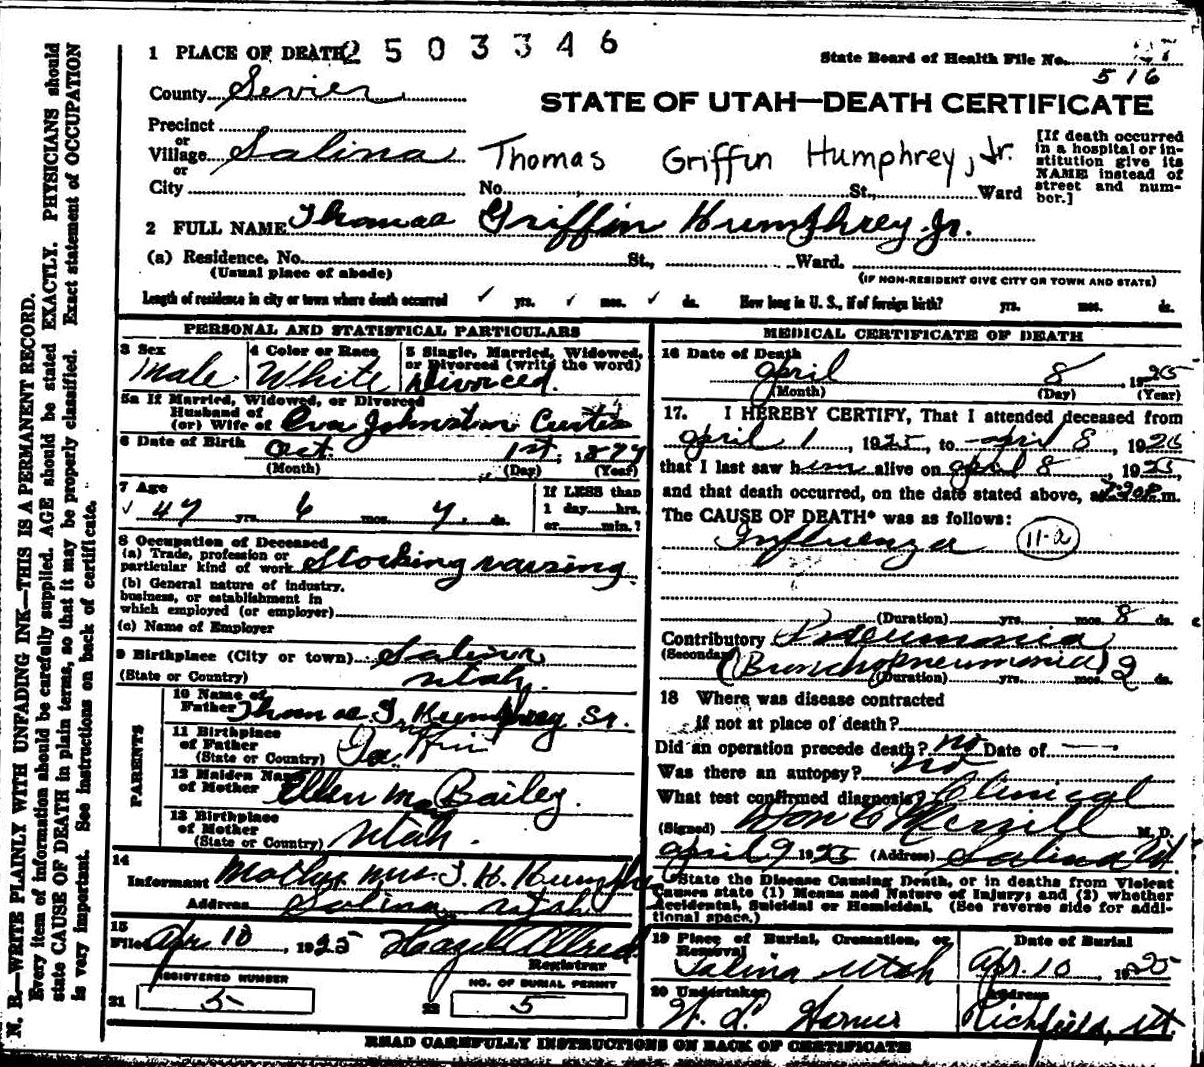 1 PLACE OF DEATH 2503346
State Board of Health File No. 516
County Sevier
STATE OF UTAH—DEATH CERTIFICATE
Precinct
or
Village Salina
Thomas Griffin Humphrey, Jr.
[If death occurred in a hospital or institution give its NAME instead of street and number.]
or
City No. St., Ward
2 FULL NAME Thomas Griffin Humphrey Jr.
(a) Residence. No. St., Ward.
(Usual place of abode) (IF NON-RESIDENT GIVE CITY OR TOWN AND STATE)
Length of residence in city or town where death occurred ✓ yrs. ✓ mos. ✓ ds. How long in U. S., if of foreign birth? yrs. mos. ds.
PERSONAL AND STATISTICAL PARTICULARS
3 Sex Male
4 Color or Race White
5 Single, Married, Widowed, or Divorced (write the word) Divorced.
5a If Married, Widowed, or Divorced
Husband of
(or) Wife of Eva Johnston Curtis
6 Date of Birth Oct. 1st, 1877
(Month) (Day) (Year)
7 Age
47 yrs. 6 mos. 7 ds.
If LESS than
1 day hrs.
or min.?
8 Occupation of Deceased
(a) Trade, profession or
particular kind of work Stocking raising
(b) General nature of industry,
business, or establishment in
which employed (or employer)
(c) Name of Employer
9 Birthplace (City or town) Salina
(State or Country) Utah.
PARENTS
10 Name of
Father Thomas G. Humphrey Sr.
11 Birthplace
of Father
(State or Country)
12 Maiden Name
of Mother Ellen M Bailey.
13 Birthplace
of Mother
(State or Country) Utah.
14
Informant Mother Mrs. T. H. Humphrey
Address Salina Utah
15
Filed Apr. 10, 1925 Hazel Allred
Registrar
REGISTERED NUMBER
21 5
NO. OF BURIAL PERMIT
22 5
MEDICAL CERTIFICATE OF DEATH
16 Date of Death
April 8, 1925
(Month) (Day) (Year)
17. I HEREBY CERTIFY, That I attended deceased from
April 1, 1925, to April 8, 1925
that I last saw him alive on April 8, 1925,
and that death occurred, on the date stated above, at m.
The CAUSE OF DEATH* was as follows:
Influenza 11-a
(Duration) yrs. mos. 8 ds.
Contributory Pneumonia
(Secondary) (Bronchopneumonia)
(Duration) yrs. mos. 2 ds.
18 Where was disease contracted
if not at place of death?
Did an operation precede death? no Date of —
Was there an autopsy? No
What test confirmed diagnosis? Clinical
(Signed) Wm E Merrill M. D.
April 9 1925 (Address) Salina Ut.
*State the Disease Causing Death, or in deaths from Violent
Causes state (1) Means and Nature of Injury; and (2) whether
Accidental, Suicidal or Homicidal. (See reverse side for addi-
tional space.)
19 Place of Burial, Cremation, or
Removal
Salina Utah
Date of Burial
Apr. 10, 1925
20 Undertaker
W. L. Horner
Address
Richfield, Ut.
READ CAREFULLY INSTRUCTIONS ON BACK OF CERTIFICATE
N. B.—WRITE PLAINLY WITH UNFADING INK—THIS IS A PERMANENT RECORD.
Every item of information should be carefully supplied. AGE should be stated EXACTLY. PHYSICIANS should
state CAUSE OF DEATH in plain terms, so that it may be properly classified. Exact statement of OCCUPATION
is very important. See instructions on back of certificate.